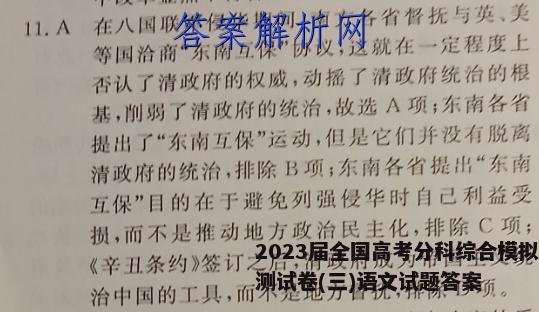 11. A 在八国联 各省督抚与英、美
答案解析网
等国洽商“东南互保”协议，这就在一定程度上
否认了清政府的权威，动摇了清政府统治的根
基，削弱了清政府的统治，故选 A 项；东南各省
提出了“东南互保”运动，但是它们并没有脱离
清政府的统治，排除 B 项；东南各省提出“东南
互保”目的在于避免列强侵华时自己利益受
损，而不是推动地方政治民主化，排除 C 项；
2023届全国高考分科综合模拟
《辛丑条约》签订之后，清政府成为帝国主义统
测试卷(三)语文试题答案
治中国的工具，而不是地方督抚，排除 D 项。